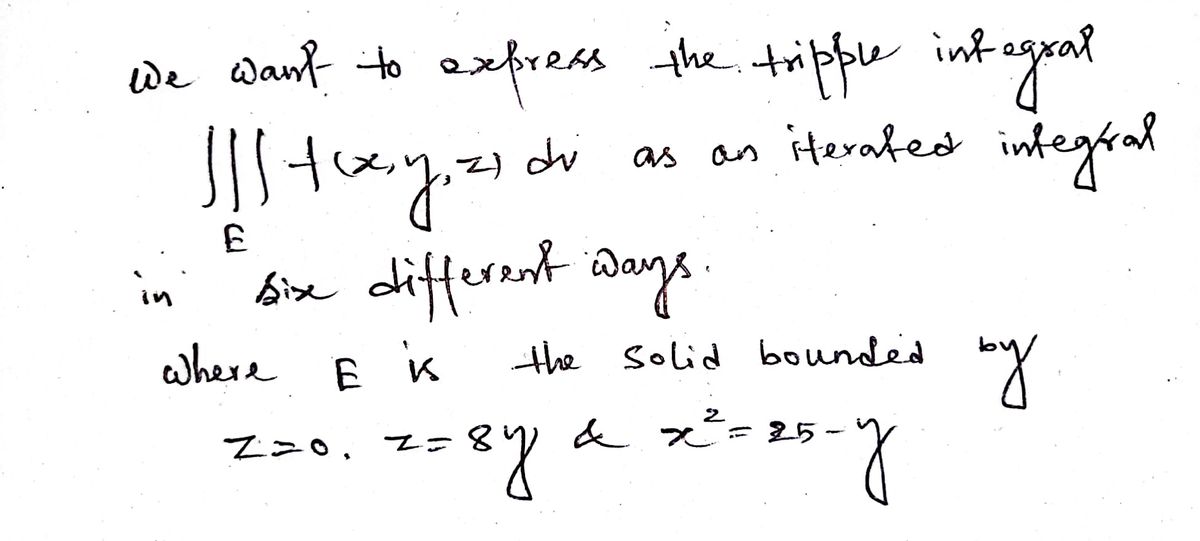 We want to express the tripple integral
∭ f(x,y,z) dv as an iterated integral
E
in six different ways.
where E is the solid bounded by
z=0, z=8y & x²=25-y